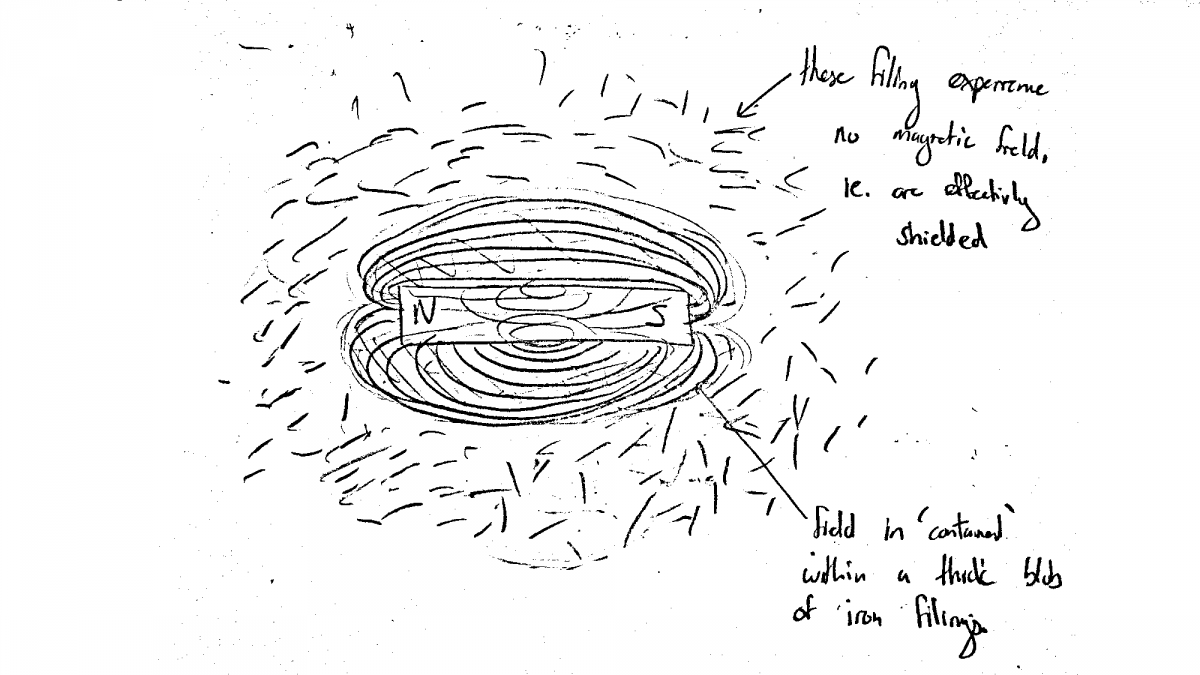 these filling experience
no magnetic field,
ie. are effectivly
shielded
N S
field in 'contained'
within a thick blob
of iron filings.